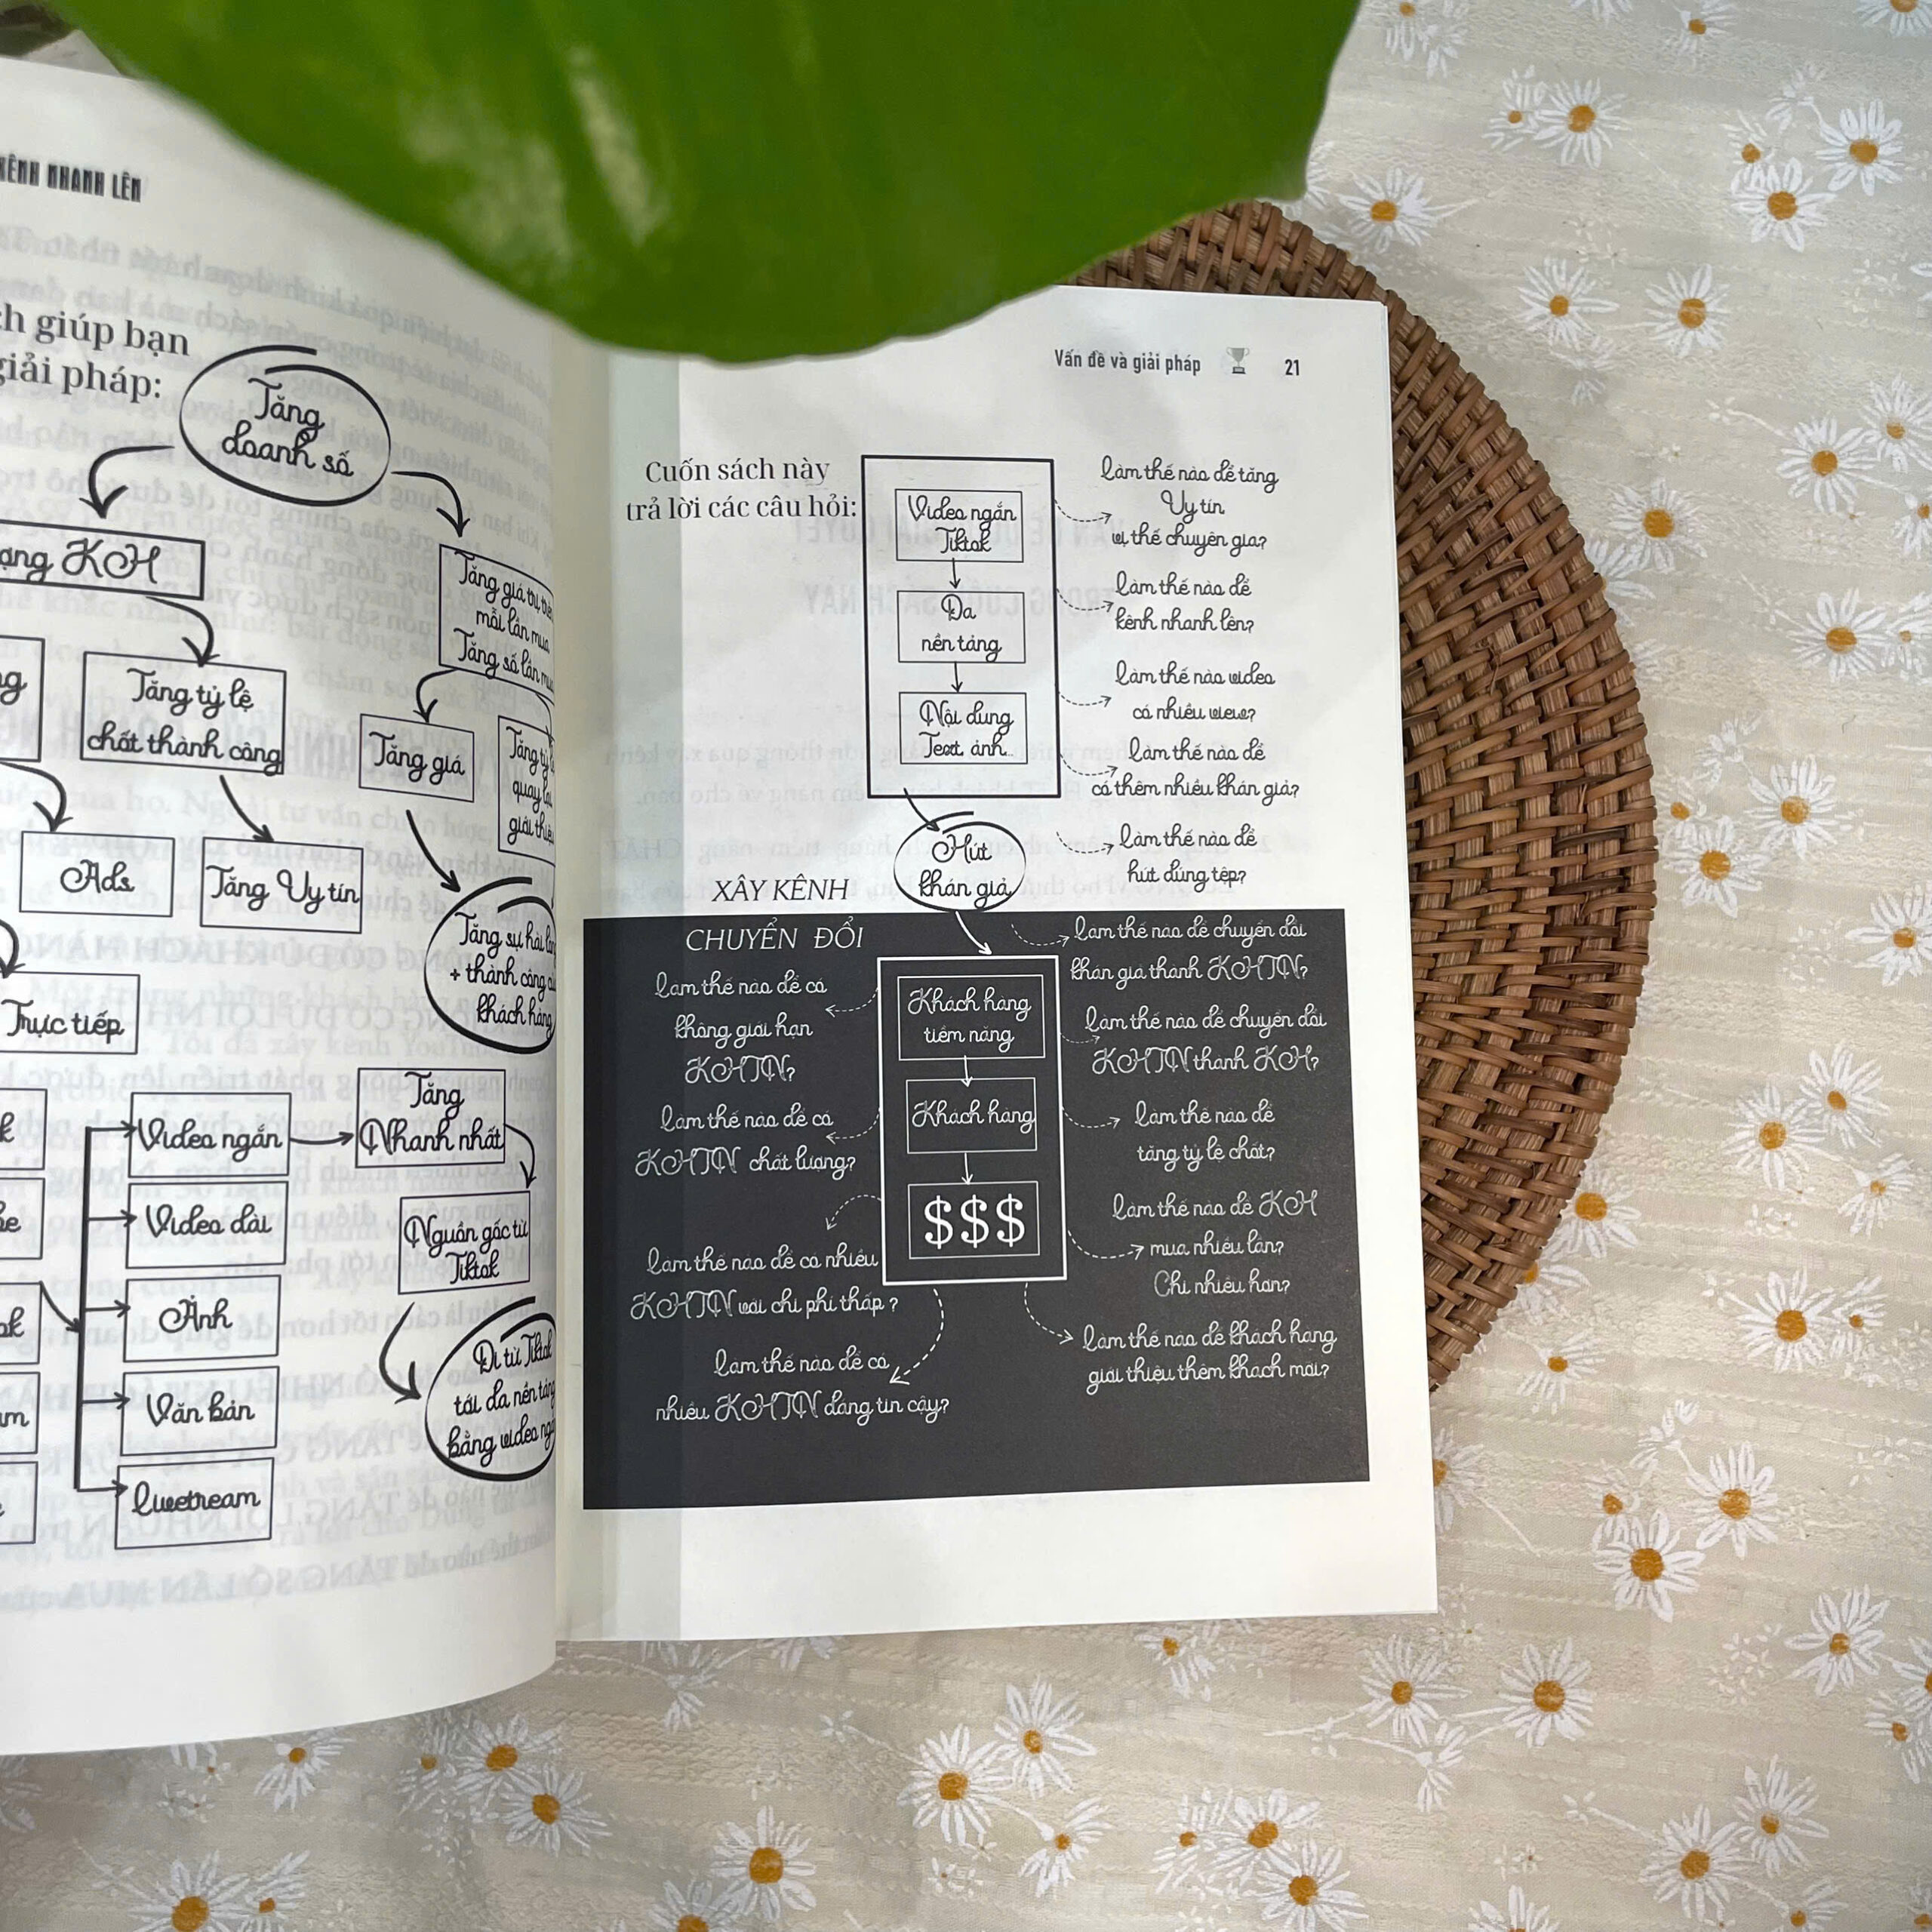 KÊNH NHANH LÊN
giúp bạn
giải pháp:
Tăng
doanh số
KH
Tăng giá trị trên
mỗi lần mua
Tăng số lần mua
Tăng tỷ lệ
chốt thành công
Tăng giá
Tăng tỷ lệ
quay lại
giới thiệu
Ads
Tăng Uy tín
Tăng sự hài lòng
+ thành công của
khách hàng
Trực tiếp
Video ngắn
Video dài
Ảnh
Văn bản
Livetream
Tăng
Nhanh nhất
Nguồn gốc từ
Tiktok
Đi từ Tiktok
tới đa nền tảng
bằng video ngắn
Vấn đề và giải pháp 21
Cuốn sách này
trả lời các câu hỏi:
Video ngắn
Tiktok
Đa
nền tảng
Nội dung
Text ảnh
Hút
khán giả
làm thế nào để tăng
Uy tín
vị thế chuyên gia?
làm thế nào để
kênh nhanh lên?
làm thế nào video
có nhiều view?
làm thế nào để
có thêm nhiều khán giả?
làm thế nào để
hút đúng tệp?
XÂY KÊNH
CHUYỂN ĐỔI
làm thế nào để có
không giới hạn
KHTN?
làm thế nào để có
KHTN chất lượng?
làm thế nào để có nhiều
KHTN với chi phí thấp?
làm thế nào để có
nhiều KHTN đáng tin cậy?
Khách hàng
tiềm năng
Khách hàng
$$$
làm thế nào để chuyển đổi
khán giả thành KHTN?
làm thế nào để chuyển đổi
KHTN thành KH?
làm thế nào để
tăng tỷ lệ chốt?
làm thế nào để KH
mua nhiều lần?
Chi nhiều hơn?
làm thế nào để khách hàng
giới thiệu thêm khách mới?